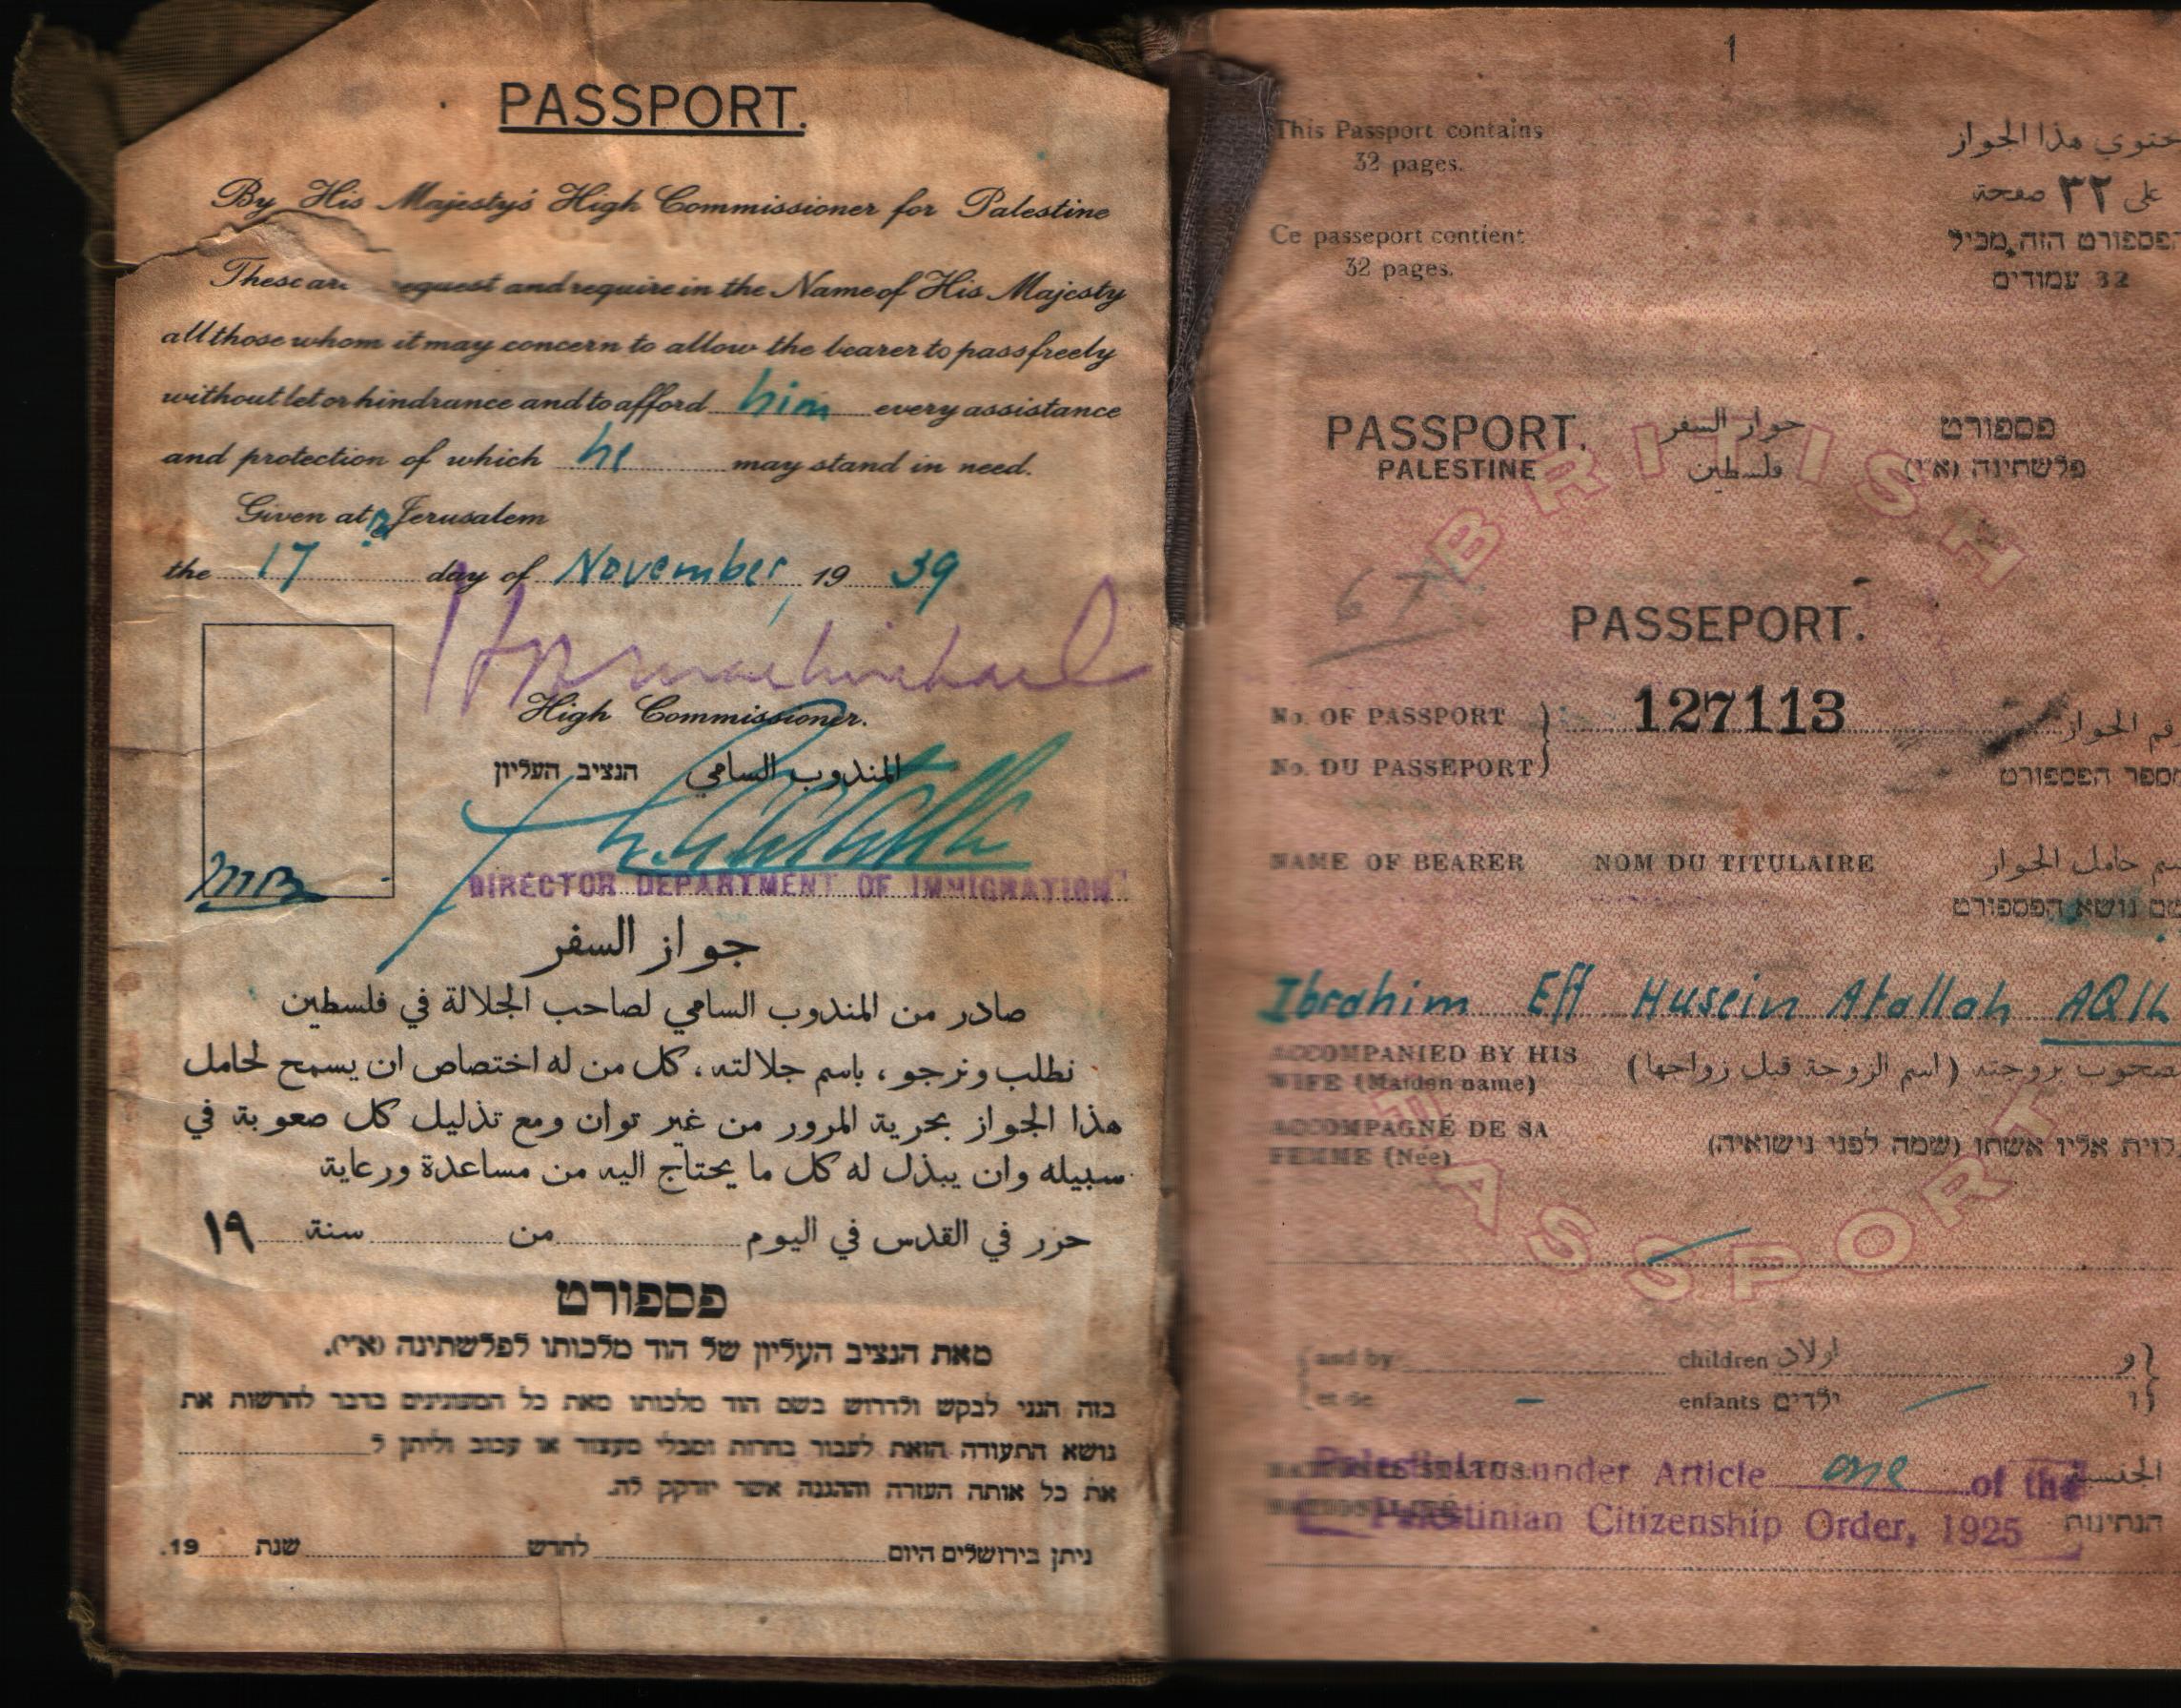 PASSPORT.
By His Majesty's High Commissioner for Palestine
These are request and require in the Name of His Majesty
all those whom it may concern to allow the bearer to pass freely
without let or hindrance and to afford him every assistance
and protection of which he may stand in need.
Given at Jerusalem
the 17 day of November, 19 39
High Commissioner.
הנציב העליון المندوب السامي
DIRECTOR DEPARTMENT OF IMMIGRATION
جواز السفر
صادر من المندوب السامي لصاحب الجلالة في فلسطين
نطلب ونرجو، باسم جلالته، كل من له اختصاص ان يسمح لحامل
هذا الجواز بحرية المرور من غير توان ومع تذليل كل صعوبة في
سبيله وان يبذل له كل ما يحتاج اليه من مساعدة ورعاية
حرر في القدس في اليوم من سنة ١٩
פספורט
מאת הנציב העליון של הוד מלכותו לפלשתינה (א״י).
בזה הנני לבקש ולדרוש בשם הוד מלכותו מאת כל המעונינים בדבר להרשות את
נושא התעודה הזאת לעבור בחרות ומבלי מעצור או עכוב וליתן ל
את כל אותה העזרה וההגנה אשר יזדקק לה.
ניתן בירושלים היום לחדש שנת 19.
1
This Passport contains
32 pages.
Ce passeport contient
32 pages.
حتوي هذا الجواز
لى ٣٢ صفحة
פספורט הזה מכיל
32 עמודים
BRITISH
PASSPORT
PASSPORT. جواز السفر פספורט
PALESTINE فلسطين פלשתינה (א״י)
67
PASSEPORT.
No. OF PASSPORT 127113 قم الجواز
No. DU PASSEPORT ספר הפספורט
NAME OF BEARER NOM DU TITULAIRE سم حامل الجواز
שם נושא הפספורט
Ibrahim Eff Husein Atallah AQIL
ACCOMPANIED BY HIS
WIFE (Maiden name) صحوب بزوجته (اسم الزوجة قبل زواجها)
ACCOMPAGNÉ DE SA
FEMME (Née) לוית אליו אשתו (שמה לפני נישואיה)
and by children اولاد و
et de enfants ילדים ו
NATIONAL STATUS الجنسي
NATIONALITÉ הנתינות
Palestinian under Article one of the
Palestinian Citizenship Order, 1925